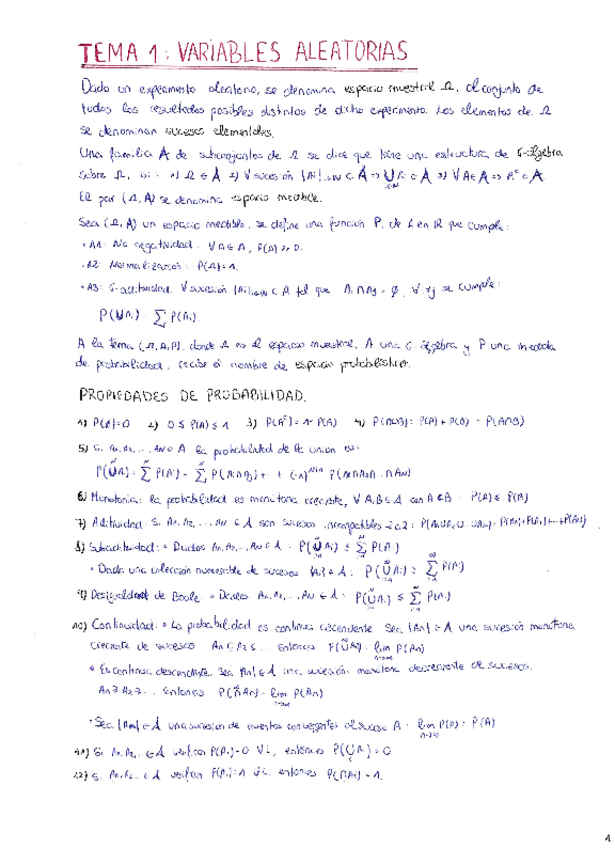 TEMA 1: VARIABLES ALEATORIAS
Dado un experimento aleatorio, se denomina espacio muestral Ω, al conjunto de
todos los resultados posibles distintos de dicho experimento. Los elementos de Ω
se denominan sucesos elementales.
Una familia A de subconjuntos de Ω se dice que tiene una estructura de σ-álgebra
sobre Ω, si: 1) Ω ∈ A 2) ∀ sucesión {Ai}i∈N ⊂ A => ∪ Ai ∈ A 3) ∀A∈A => Aᶜ ∈ A
El par (Ω, A) se denomina espacio medible.
Sea (Ω, A) un espacio medible, se define una función P, de A en R que cumple:
· A1: No negatividad: ∀A∈A, P(A) ≥ 0.
· A2: Normalización: P(Ω)=1.
· A3: σ-aditividad. ∀ sucesión {Ai}i∈N ⊂ A tal que Ai ∩ Aj = ∅, ∀ i≠j se cumple:
P(∪Ai) = Σ P(Ai)
A la terna (Ω, A, P), donde Ω es el espacio muestral, A una σ-álgebra y P una medida
de probabilidad, recibe el nombre de espacio probabilístico.
PROPIEDADES DE PROBABILIDAD.
1) P(∅)=0 2) 0 ≤ P(A) ≤ 1 3) P(Aᶜ) = 1-P(A) 4) P(A∪B) = P(A) + P(B) - P(A∩B)
5) Si A1, A2, ..., An ∈ A la probabilidad de la unión es:
P(∪Ai) = Σ P(Ai) - Σ P(Ai∩Aj) + ... + (-1)ⁿ⁺¹ P(A1∩A2∩...∩An)
6) Monotonía: la probabilidad es monótona creciente, ∀ A,B ∈ A con A⊂B : P(A) ≤ P(B)
7) Aditividad: Si A1, A2, ..., An ∈ A son sucesos incompatibles 2 a 2: P(A1∪A2∪...∪An) = P(A1)+P(A2)+...+P(An)
8) Subaditividad: • Dados A1, A2, ..., An ∈ A : P(∪Ai) ≤ Σ P(Ai)
• Dada una colección numerable de sucesos {Ai} ∈ A : P(∪Ai) ≤ Σ P(Ai)
9) Desigualdad de Boole: • Dados A1, A2, ..., An ∈ A : P(∪Ai) ≤ Σ P(Ai)
10) Continuidad: • La probabilidad es continua ascendente. Sea {An} ∈ A una sucesión monótona
creciente de sucesos A1 ⊆ A2 ⊆ ... entonces P(∪An) = lim P(An)
• Es continua descendente. Sea {An} ∈ A una sucesión monótona decreciente de sucesos.
A1 ⊇ A2 ⊇ ... entonces P(∩An) = lim P(An)
• Sea {An} ∈ A una sucesión de eventos convergentes al suceso A : lim P(An) = P(A)
11) Si A1, A2, ... ∈ A verifican P(Ai)=0 ∀i, entonces P(∪Ai) = 0
12) Si A1, A2, ... ∈ A verifican P(Ai)=1 ∀i, entonces P(∩Ai) = 1.
1